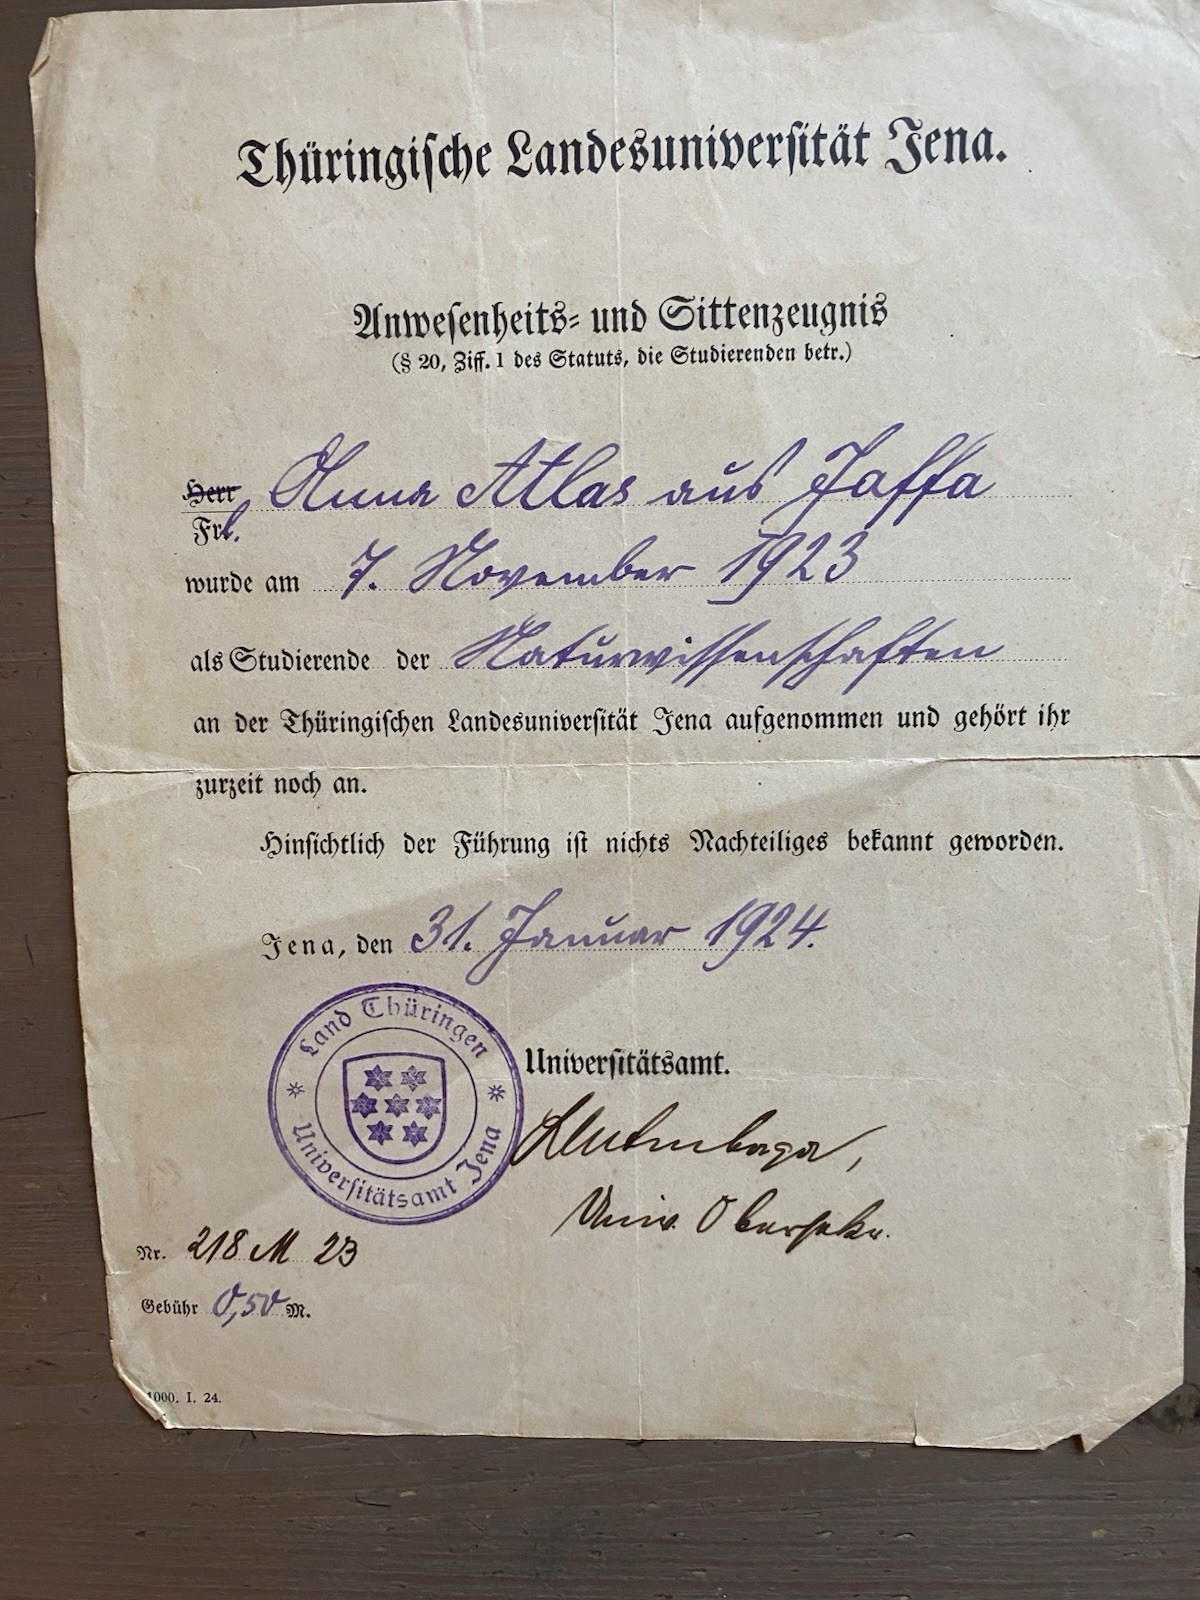 Thüringische Landesuniversität Jena.
Anwesenheits- und Sittenzeugnis
(§ 20, Ziff. 1 des Statuts, die Studierenden betr.)
Herr
Frl. Anna Atlas aus Jaffa
wurde am 7. November 1923
als Studierende der Naturwissenschaften
an der Thüringischen Landesuniversität Jena aufgenommen und gehört ihr
zurzeit noch an.
Hinsichtlich der Führung ist nichts Nachteiliges bekannt geworden.
Jena, den 31. Januar 1924.
Land Thüringen
Universitätsamt Jena
Universitätsamt.
Univ. Obersekr.
Nr. 218 M 23
Gebühr 0,50 M.
1000. I. 24.